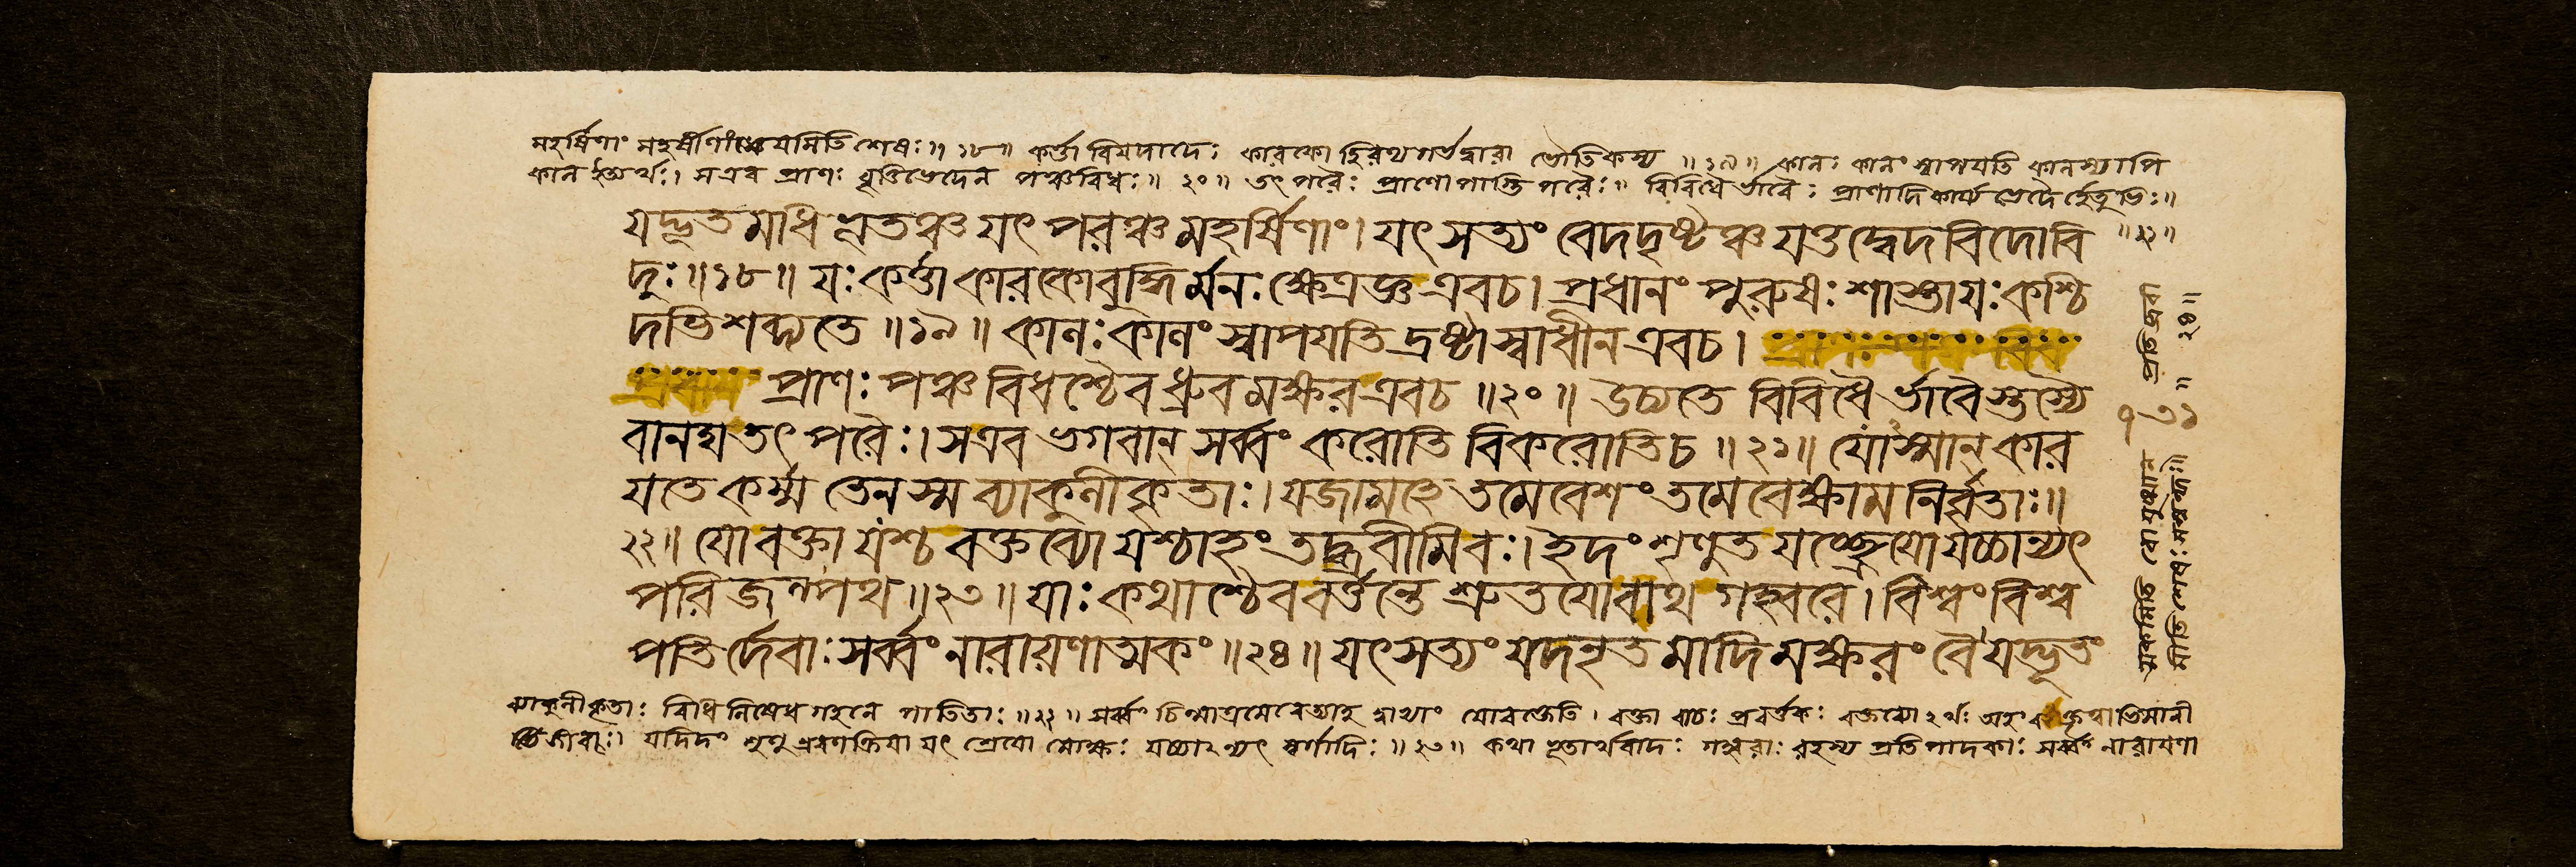 মহর্ষিণাং মহর্ষীণাং ধ্যেয়মিতি শেষঃ॥ ১৮॥ কর্ত্তা বিয়দাদেঃ কারকো হিরণ্যগর্ভদ্বারা ভৌতিকস্য ॥ ১৯॥ কালঃ কালং স্বাপয়তি কালস্যাপি
কাল ইত্যর্থঃ। স এব প্রাণঃ বৃত্তিভেদেন পঞ্চবিধঃ॥ ২০॥ তৎ পরৈঃ প্রাণোপাস্তিপরৈঃ॥ বিবিধৈর্ভাবৈঃ প্রাণাদিকার্য্যভেদৈর্হেতুভিঃ॥
যদ্ভূতমাধিকৃতঞ্চ যৎ পরঞ্চ মহর্ষিণাং। যৎ সত্যং বেদদৃষ্টঞ্চ যত্তদ্বেদবিদোবি
॥ ২১॥
দুঃ॥১৮॥ যঃ কর্ত্তা কারকোবুদ্ধির্মনঃ ক্ষেত্রজ্ঞ এবচ। প্রধানং পুরুষঃ শাস্তা যঃ কশ্চি
দভিশব্দ্যতে ॥১৯॥ কালঃ কালং স্বাপযতি দ্রষ্টা স্বাধীন এবচ।
প্রাণঃ পঞ্চবিধশ্চৈব ধ্রুবমক্ষর এবচ ॥২০॥ উচ্যতে বিবিধৈর্ভাবৈস্তস্যৈ
বানঘ তৎ পরৈঃ। স এব ভগবান্ সর্ব্বং করোতি বিকরোতিচ ॥২১॥ যোস্মান্ কার
যতে কর্ম্ম তেন স্ম ব্যাকুলীকৃতাঃ। যজামহে তমেবেশং তমেবেক্ষাম নির্বৃতাঃ॥
২২॥ যো বক্তা যশ্চ বক্তব্যো যশ্চাহং তদ্ব্রবীমিবঃ। ইদং শৃণুত যচ্ছ্রেযো যচ্চান্যৎ
পরিজল্পথ ॥২৩॥ যাঃ কথাশ্চৈব বর্ত্তন্তে শ্রুতযোবাথ গহ্বরে। বিশ্বং বিশ্ব
পতির্দেবাঃ সর্ব্বং নারায়ণাত্মকং॥২৪॥ যৎ সত্যং যদনৃতমাদিমক্ষরং বৈ যদ্ভূতং
ব্যাকুলীকৃতাঃ বিধিনিষেধগহনে পাতিতাঃ॥২২॥ সর্ব্বং চিন্মাত্রমেবেত্যাহ দ্বাভ্যাং যোবক্তেতি। বক্তা বাচঃ প্রবর্ত্তকঃ বক্তব্যো ঽর্থঃ অহং বক্তৃত্বাভিমানী
জীবঃ। যদিদং শৃণু শ্রবণক্রিয়া যৎ শ্রেযো মোক্ষঃ যচ্চাঽন্যৎ স্বর্গাদিঃ॥২৩॥ কথা ভূতার্থবাদঃ গহ্বরাঃ রহস্য প্রতিপাদকাঃ সর্ব্বং নারাযণা
১৩১
॥ ২৪॥